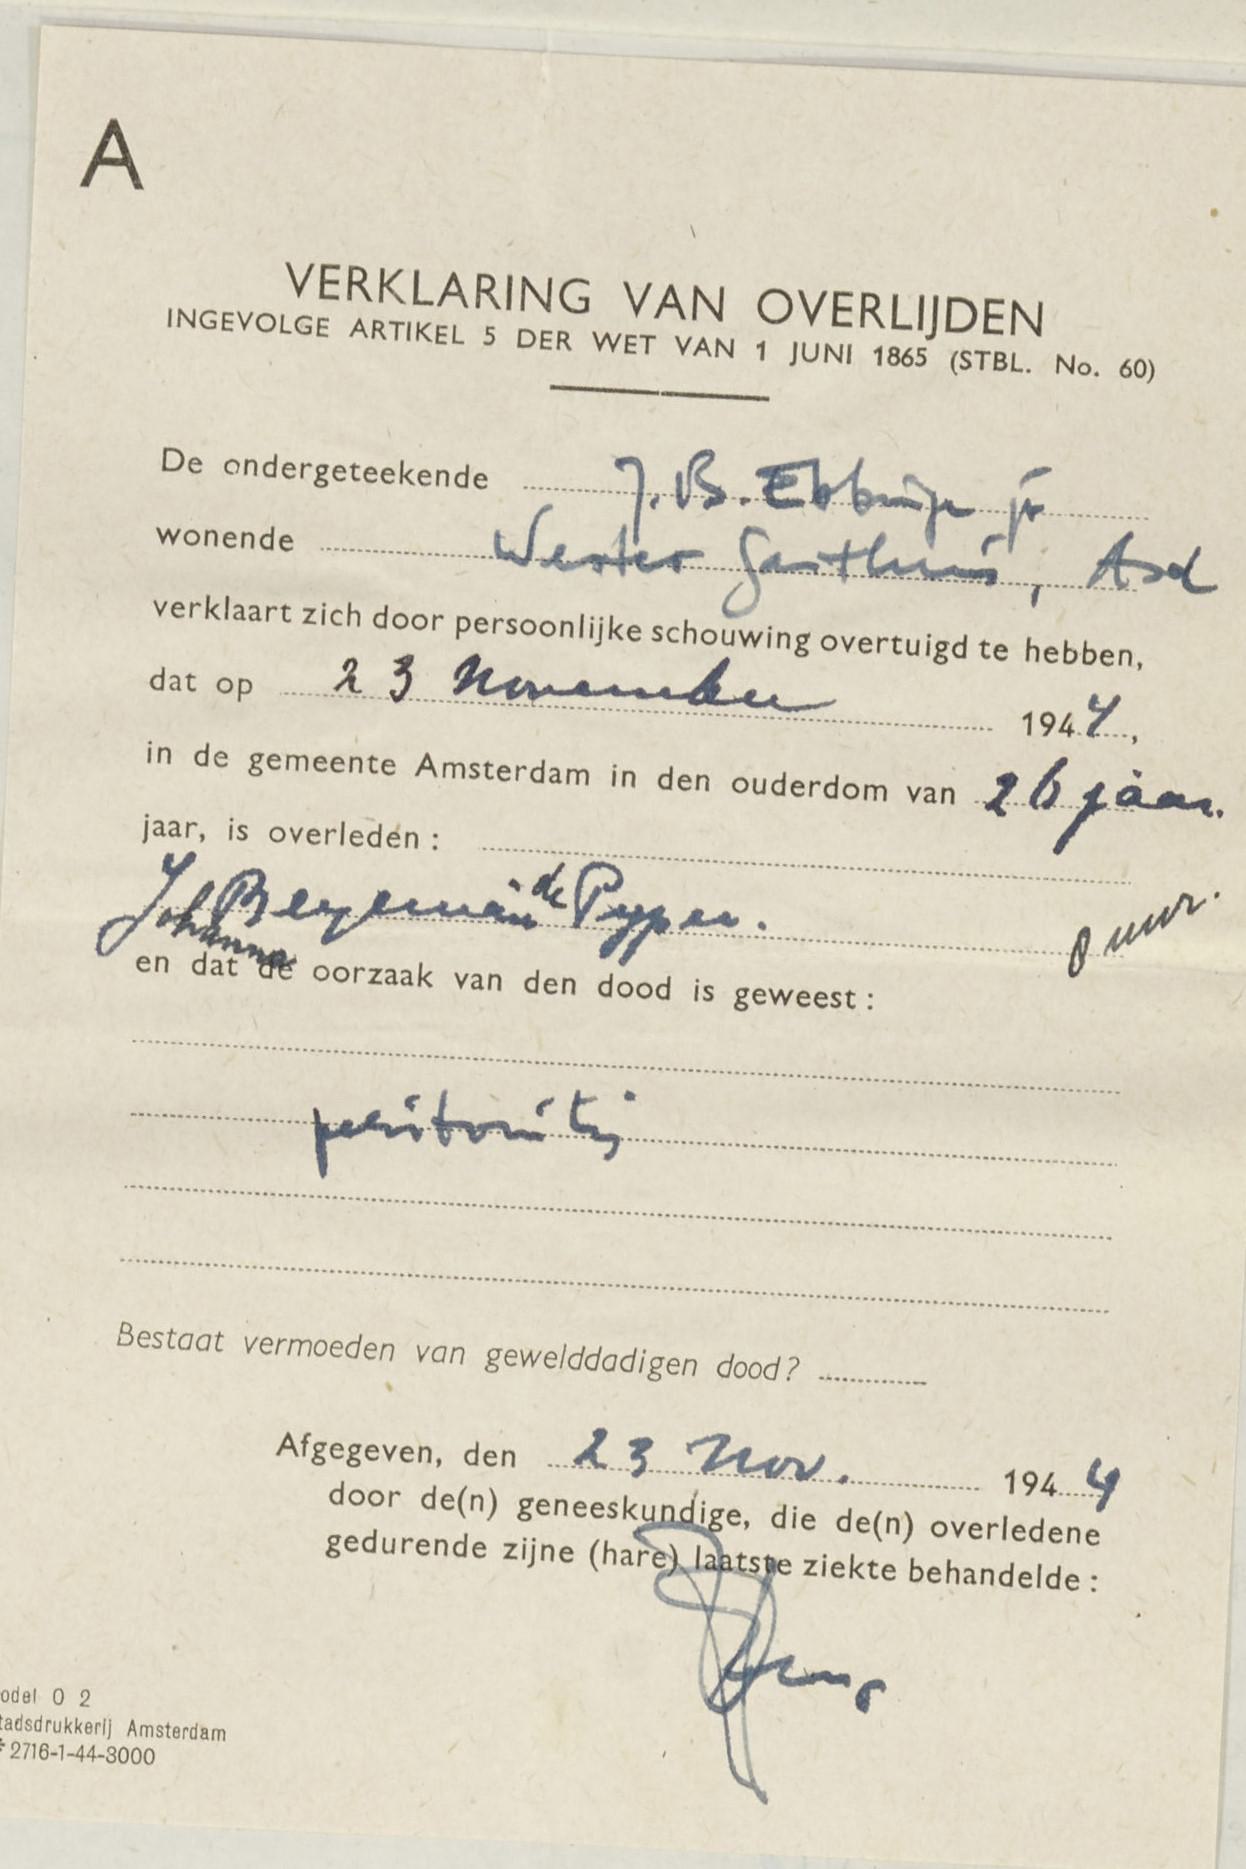 A
VERKLARING VAN OVERLIJDEN
INGEVOLGE ARTIKEL 5 DER WET VAN 1 JUNI 1865 (STBL. No. 60)
De ondergeteekende J. B. Ebbinge jr
wonende Wester Gasthuis, Asd
verklaart zich door persoonlijke schouwing overtuigd te hebben,
dat op 23 November 1944,
in de gemeente Amsterdam in den ouderdom van 26 jaar.
jaar, is overleden:
Johanna Bergeman de Pyper.
en dat de oorzaak van den dood is geweest:
peritonitis
Bestaat vermoeden van gewelddadigen dood?
Afgegeven, den 23 Nov. 1944
door de(n) geneeskundige, die de(n) overledene
gedurende zijne (hare) laatste ziekte behandelde:
odel O 2
tadsdrukkerij Amsterdam
* 2716-1-44-3000